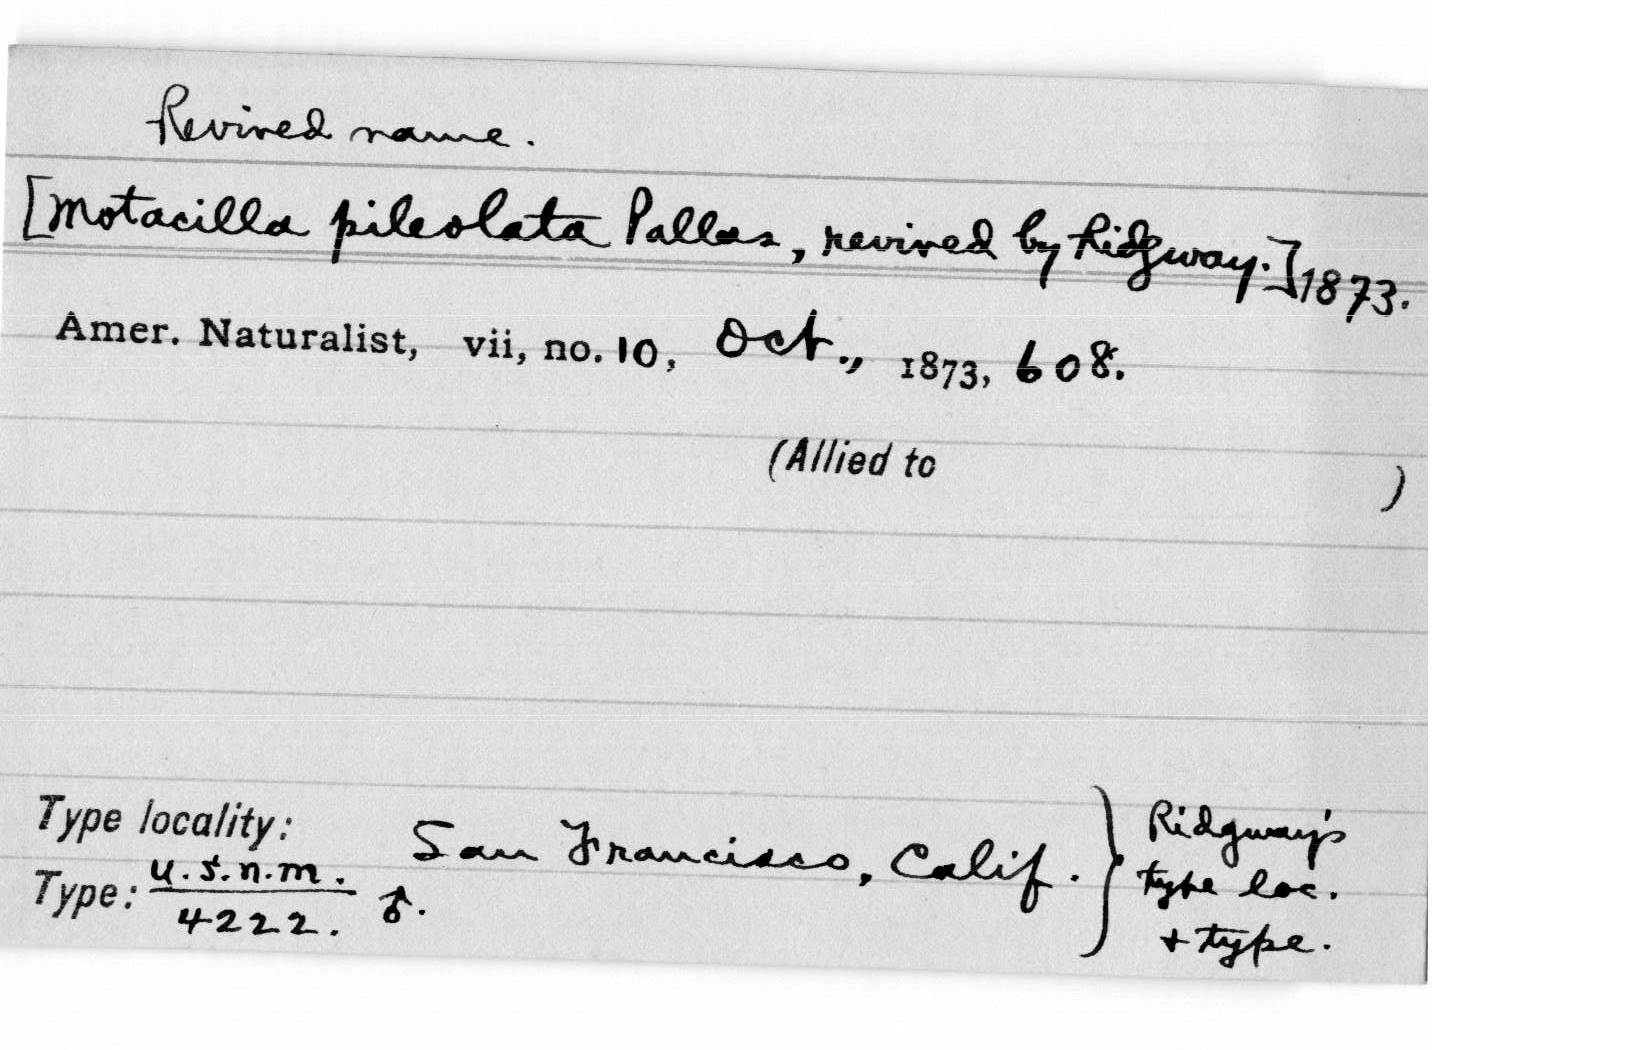 Revived name.
[Motacilla pileolata Pallas, revived by Ridgway.] 1873.
Amer. Naturalist, vii, no. 10, Oct., 1873, 608.
(Allied to )
Type locality: San Francisco, Calif. } Ridgway's
type loc.
+ type.
Type: U.S.N.M.
4222. ♂.